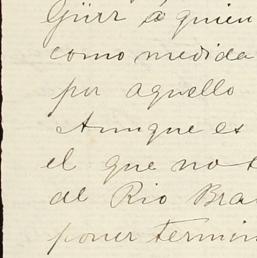 Gürr á quien
como medida
por aquello
Aunque es
el que no t
del Rio Bra
poner termin